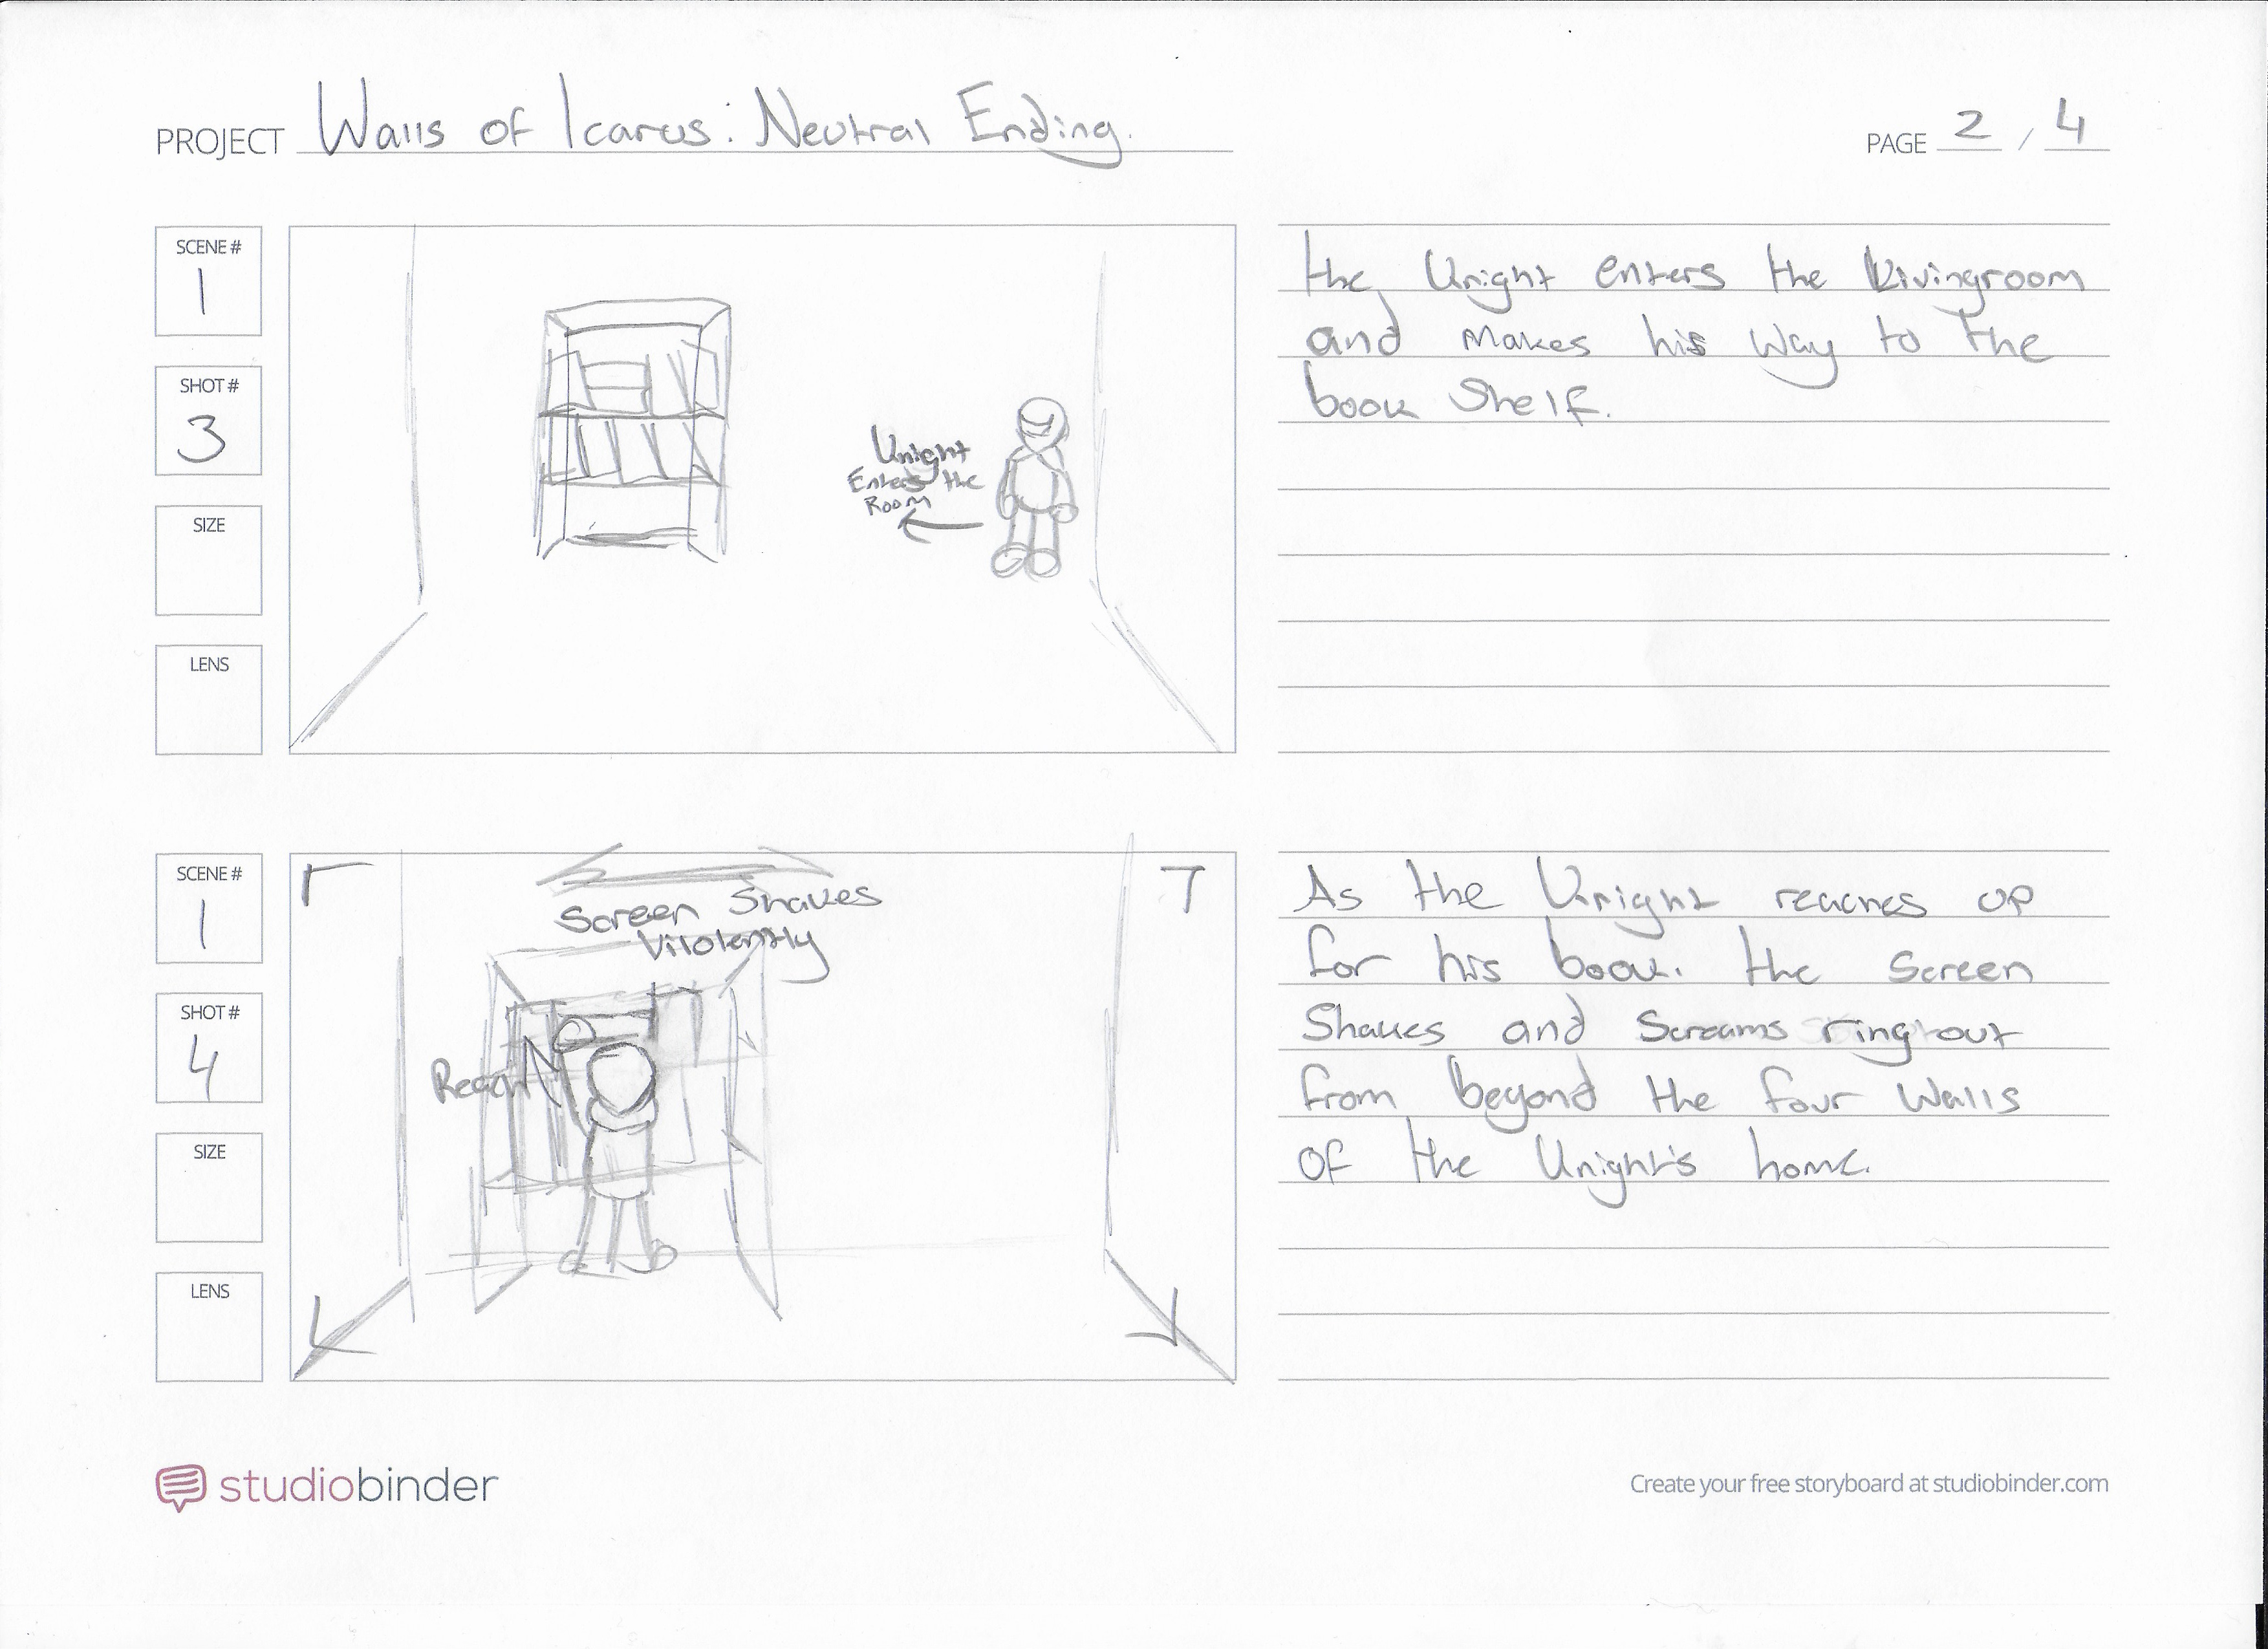 PROJECT Walls of Icarus: Neutral Ending.
PAGE 2 / 4
SCENE #
1
SHOT #
3
SIZE
LENS
Knight
Enters the
Room
the Knight enters the Livingroom
and makes his way to the
book Shelf.
SCENE #
1
SHOT #
4
SIZE
LENS
Screen Shakes
Vilolently
Reach
As the Knight reaches up
for his book. the Screen
Shakes and Screams ring out
from beyond the four Walls
of the Knight's home.
studiobinder
Create your free storyboard at studiobinder.com